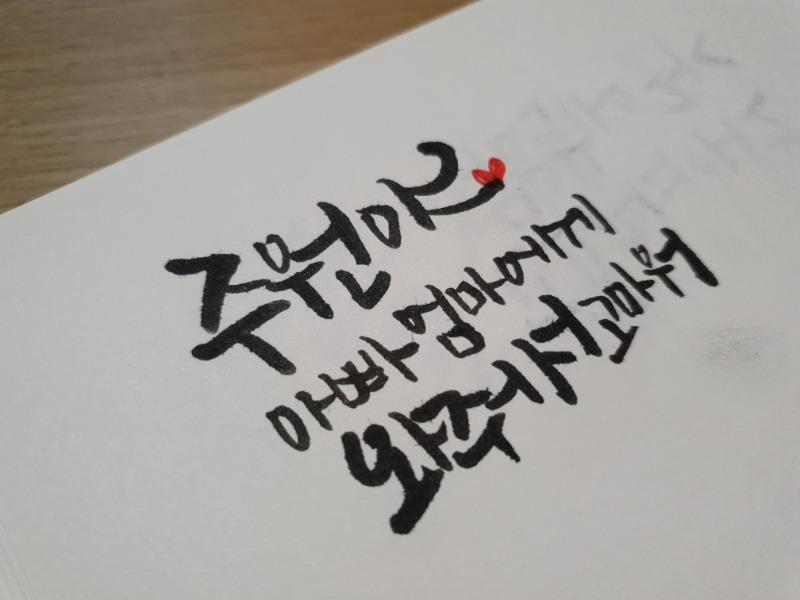 주원아
아빠 엄마에게
와줘서 고마워